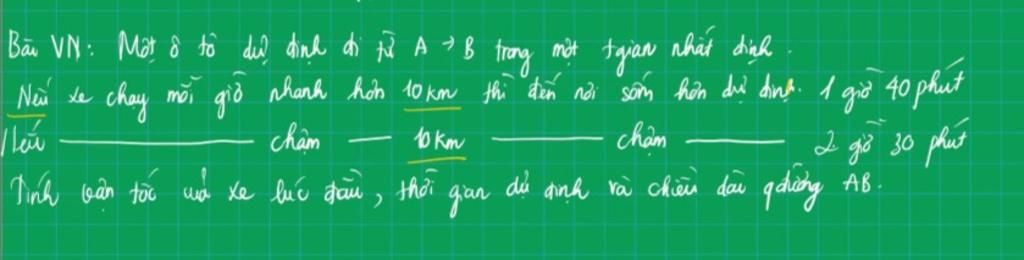 Bài VN: Một ô tô dự định đi từ A → B trong một tgian nhất định.
Nếu xe chạy mỗi giờ nhanh hơn 10 km thì đến nơi sớm hơn dự định 1 giờ 40 phút
Nếu ——— chậm — 10 km ——— chậm ——— 2 giờ 30 phút
Tính vận tốc của xe lúc đầu, thời gian dự định và chiều dài qđường AB.